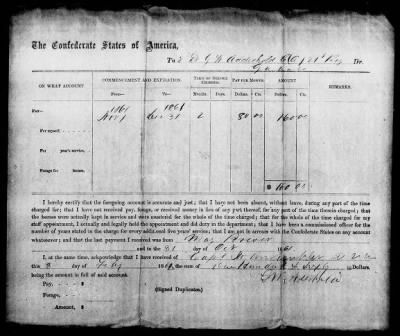 The Confederate States of America,
To 2 Lt G W Dr.
ON WHAT ACCOUNT. COMMENCEMENT AND EXPIRATION. TERM OF SERVICE CHARGED. PAY PER MONTH. AMOUNT. REMARKS.
From— To— Months. Days. Dolls. Cts. Dollars. Cts.
Pay— 1861 1861
Nov 1 Dec 31 2 80 00 160 00
For myself
For years' service,
Forage for horses,
$ 160 00
I hereby certify that the foregoing account is accurate and just; that I have not been absent, without leave, during any part of the time
charged for; that I have not received pay, forage, or received money in lieu of any part thereof, for any part of the time therein charged; that
the horses were actually kept in service and were mustered for the whole of the time charged; that for the whole of the time charged for my
staff appointment, I actually and legally held the appointment and did duty in the department; that I have been a commissioned officer for the
number of years stated in the charge for every additional five years' service; that I am not in arrears with the Confederate States on any account
whatsoever; and that the last payment I received was from Maj
and to the 31 day of Oct 1861
I, at the same time, acknowledge that I have received of Capt
this 3 day of Feby 186 the sum of One Hundred & Sixty Dollars,
being the amount in full of said account.
Pay, $
Forage, $
Amount, $
(Signed Duplicates.)